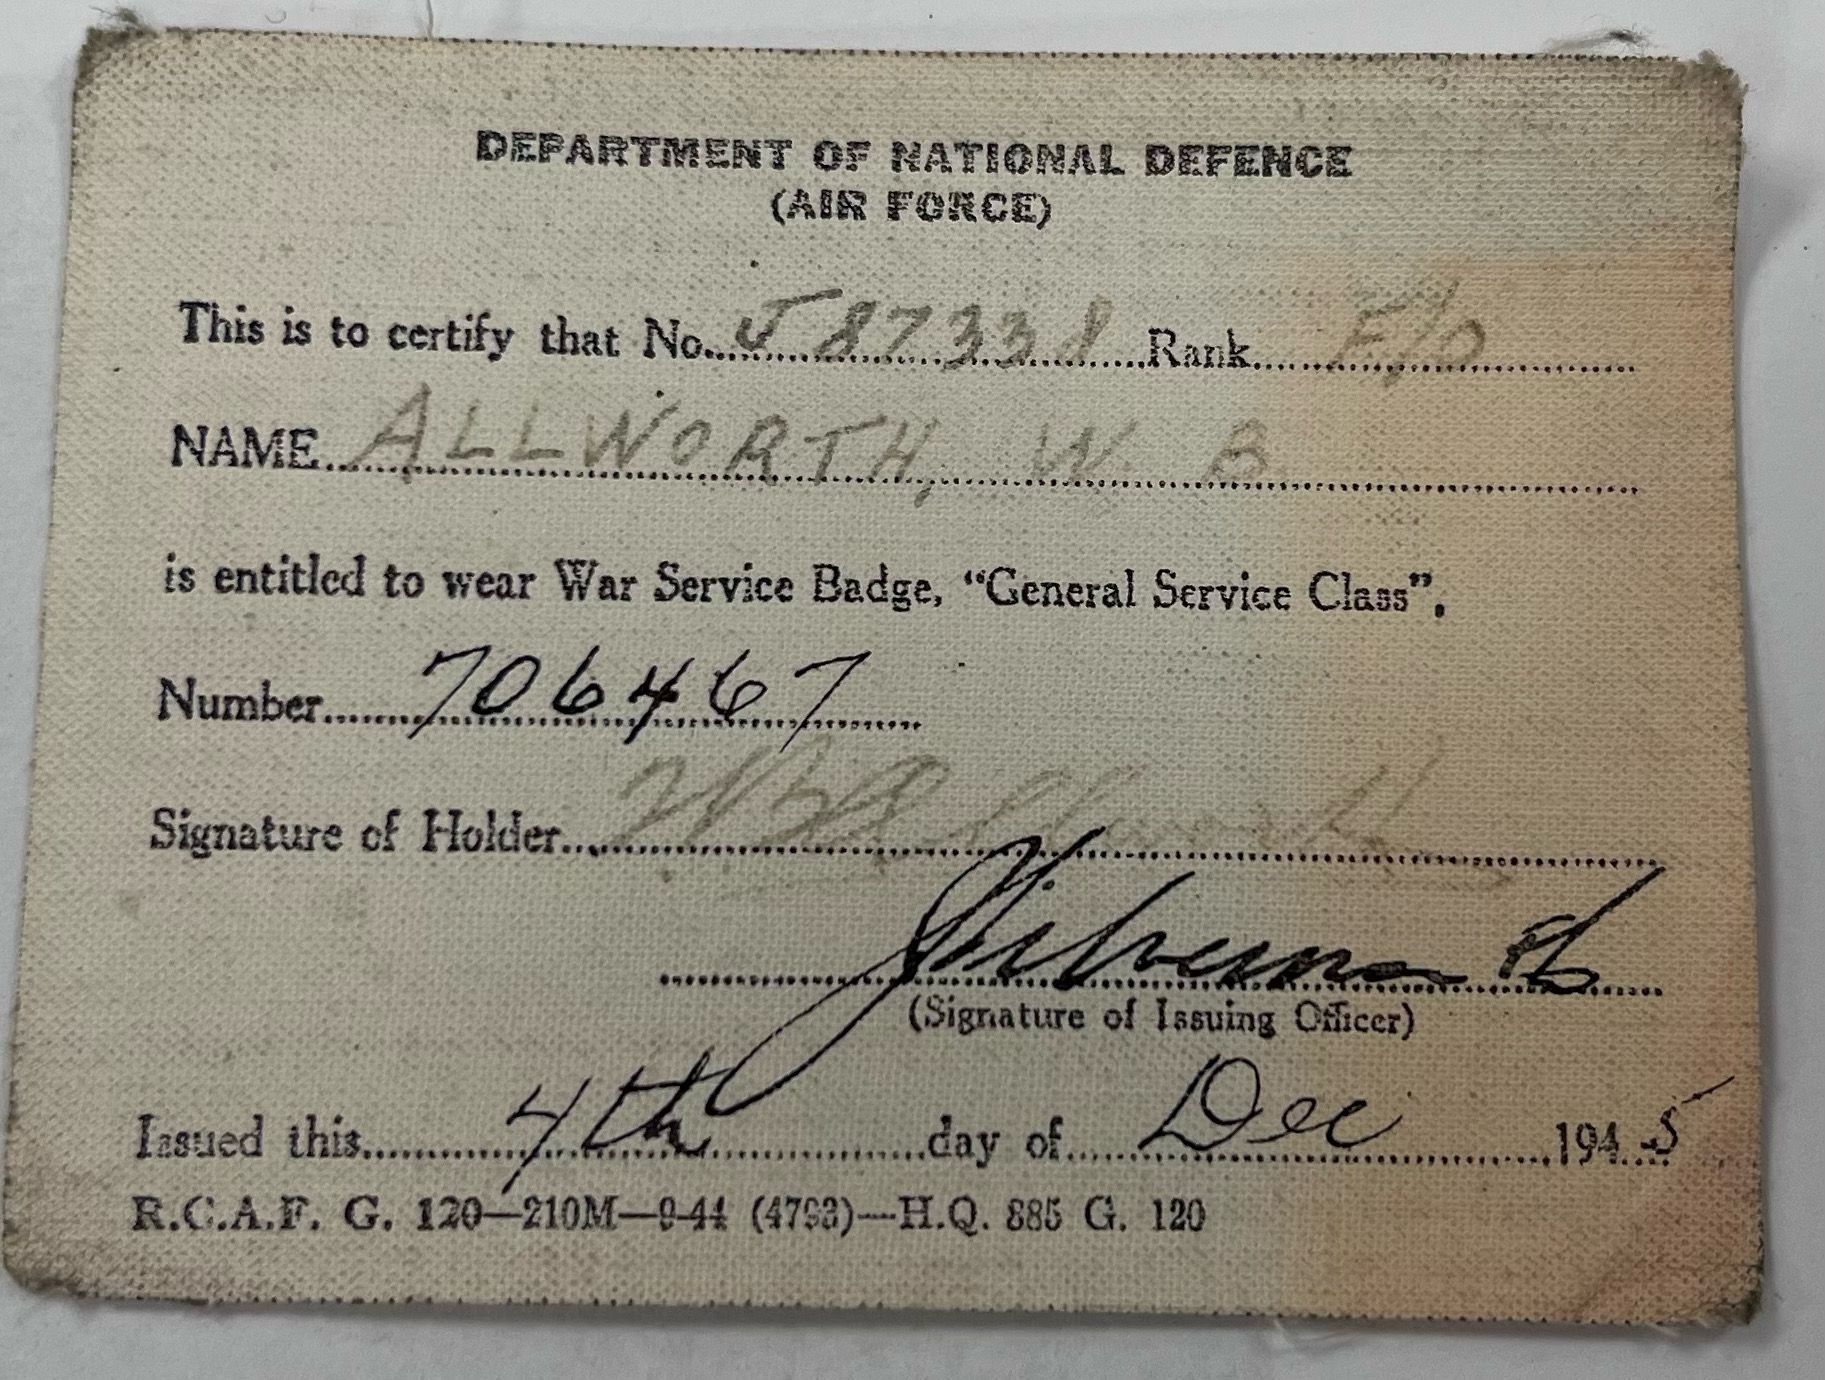 DEPARTMENT OF NATIONAL DEFENCE
(AIR FORCE)
This is to certify that No. J 87338 Rank F/O
NAME ALLWORTH, W B
is entitled to wear War Service Badge, "General Service Class",
Number 706467
Signature of Holder
(Signature of Issuing Officer)
Issued this 4th day of Dec 1945
R.C.A.F. G. 120—210M—9-44 (4793)—H.Q. 885 G. 120